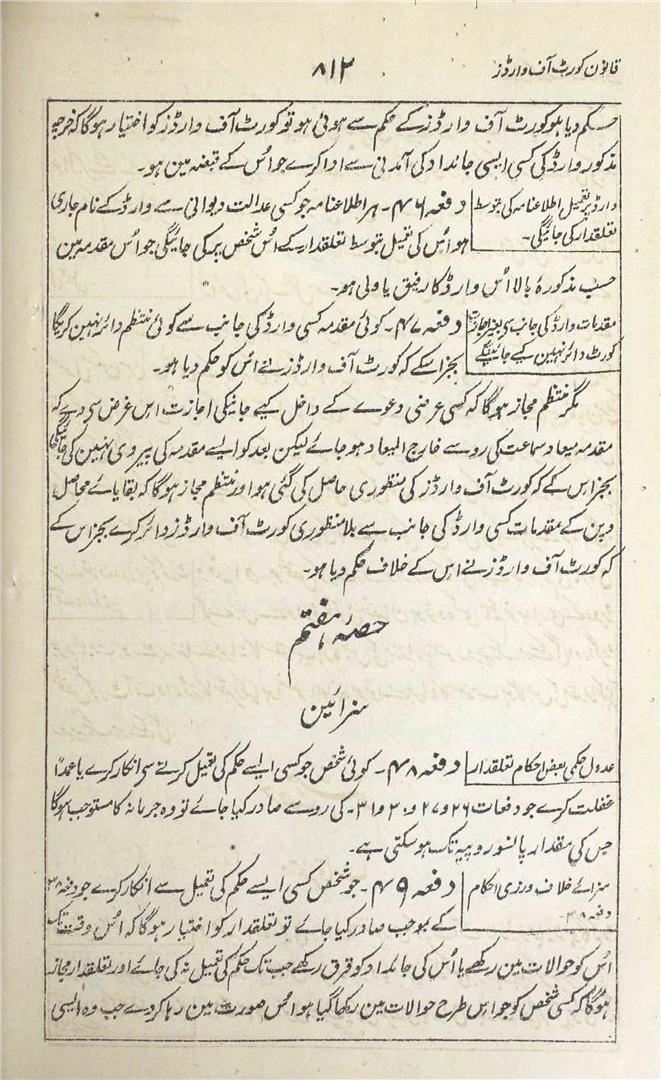 قانون کورٹ آف وارڈز
۸۱۲
حکم دیا ہلو کورٹ آف وارڈز کے حکم سے ہوئی ہو تو کورٹ آف وارڈز کو اختیار ہوگا کہ خرچہ
مذکور وارڈ کی کسی ایسی جائداد کی آمدنی سے ادا کرے جو اُس کے قبضہ مین ہو۔
وارڈ پر تعمیل اطلاعنامہ کی بتوسط
تعلقدار کی جائیگی۔
دفعہ ۴۶۔ ہر اطلاعنامہ جو کسی عدالت دیوانی سے وارڈ کے نام جاری
ہو اُس کی تعمیل بتوسط تعلقدار کے اُس شخص پر کی جائیگی جو اُس مقدمہ مین
حسب مذکورۂ بالا اُس وارڈ کا رفیق یا ولی ہو۔
مقدمات وارڈ کی جانب سے بغیر اجازت
کورٹ دائر نہین کیے جائینگے
دفعہ ۴۷۔ کوئی مقدمہ کسی وارڈ کی جانب سے کوئی منتظم دائر نہین کریگا
بجز اسکے کہ کورٹ آف وارڈز نے اُس کو حکم دیا ہو۔
مگر منتظم مجاز ہوگا کہ کسی عرضی دعوے کے داخل کیے جانیکی اجازت اس غرض سی دے کہ
مقدمہ میعاد سماعت کی رو سے خارج المیعاد ہو جائے لیکن بعد کو ایسے مقدمہ کی پیروی نہین کی جائیگی
بجز اس کے کہ کورٹ آف وارڈز کی منظوری حاصل کی گئی ہو اور منتظم مجاز ہوگا کہ بقایائے محاصل
و دین کے مقدمات کسی وارڈ کی جانب سے بلا منظوری کورٹ آف وارڈز دائر کرے بجز اس کے
کہ کورٹ آف وارڈز نے اس کے خلاف حکم دیا ہو۔
حصۂ ہفتم
سزائین
عدول حکمی بعض احکام تعلقدار
دفعہ ۴۸۔ کوئی شخص جو کسی ایسے حکم کی تعمیل کرنے سے انکار کرے یا عمداً
غفلت کرے جو دفعات ۲۶ و ۲۷ و ۳۰ و ۳۱۔ کی رو سے صادر کیا جائے تو وہ جرمانہ کا مستوجب ہوگا
جس کی مقدار پانسو روپیہ تک ہو سکتی ہے۔
سزائے خلاف ورزی احکام
دفعہ
دفعہ ۴۹۔ جو شخص کسی ایسے حکم کی تعمیل سے انکار کرے جو دفعہ
کے بموجب صادر کیا جائے تو تعلقدار کو اختیار ہوگا کہ اُس وقت تک
اُس کو حوالات مین رکھے یا اُس کی جائداد کو قرق رکھے جب تک حکم کی تعمیل نہ کی جائے اور تعلقدار مجاز
ہوگا کہ کسی شخص کو جو اس طرح حوالات مین رکھا گیا ہو اُس صورت مین رہا کردے جب وہ ایسی